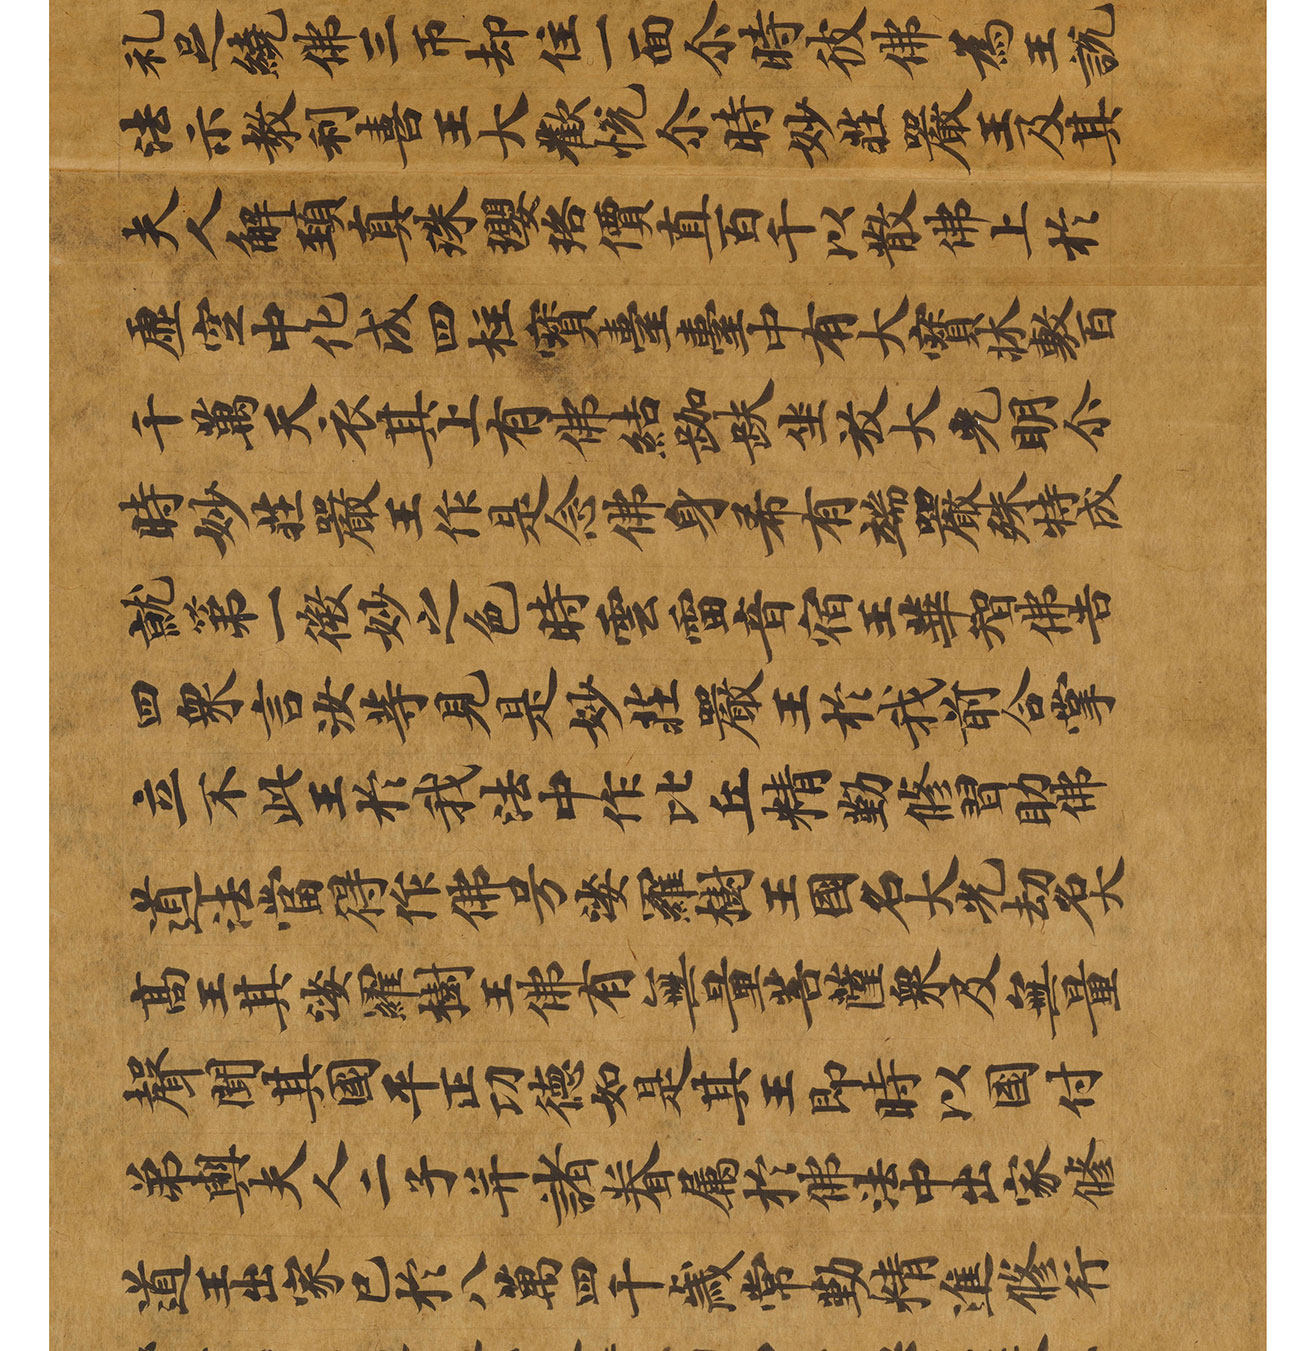 礼足繞佛三帀却住一面尒時彼佛為王說
法示教利喜王大歡恱尒時妙莊嚴王及其
夫人解頸真珠瓔珞價直百千以散佛上於
虛空中化成四柱寶臺臺中有大寶牀敷百
千萬天衣其上有佛結跏趺坐放大光明尒
時妙莊嚴王作是念佛身希有端嚴殊特成
就第一微妙之色時雲雷音宿王華智佛告
四衆言汝等見是妙莊嚴王於我前合掌
立不此王於我法中作比丘精勤修習助佛
道法當得作佛号娑羅樹王國名大光劫名大
高王其娑羅樹王佛有無量菩薩衆及無量
聲聞其國平正功德如是其王即時以國付
弟與夫人二子并諸眷屬於佛法中出家修
道王出家已於八萬四千歲常勤精進修行